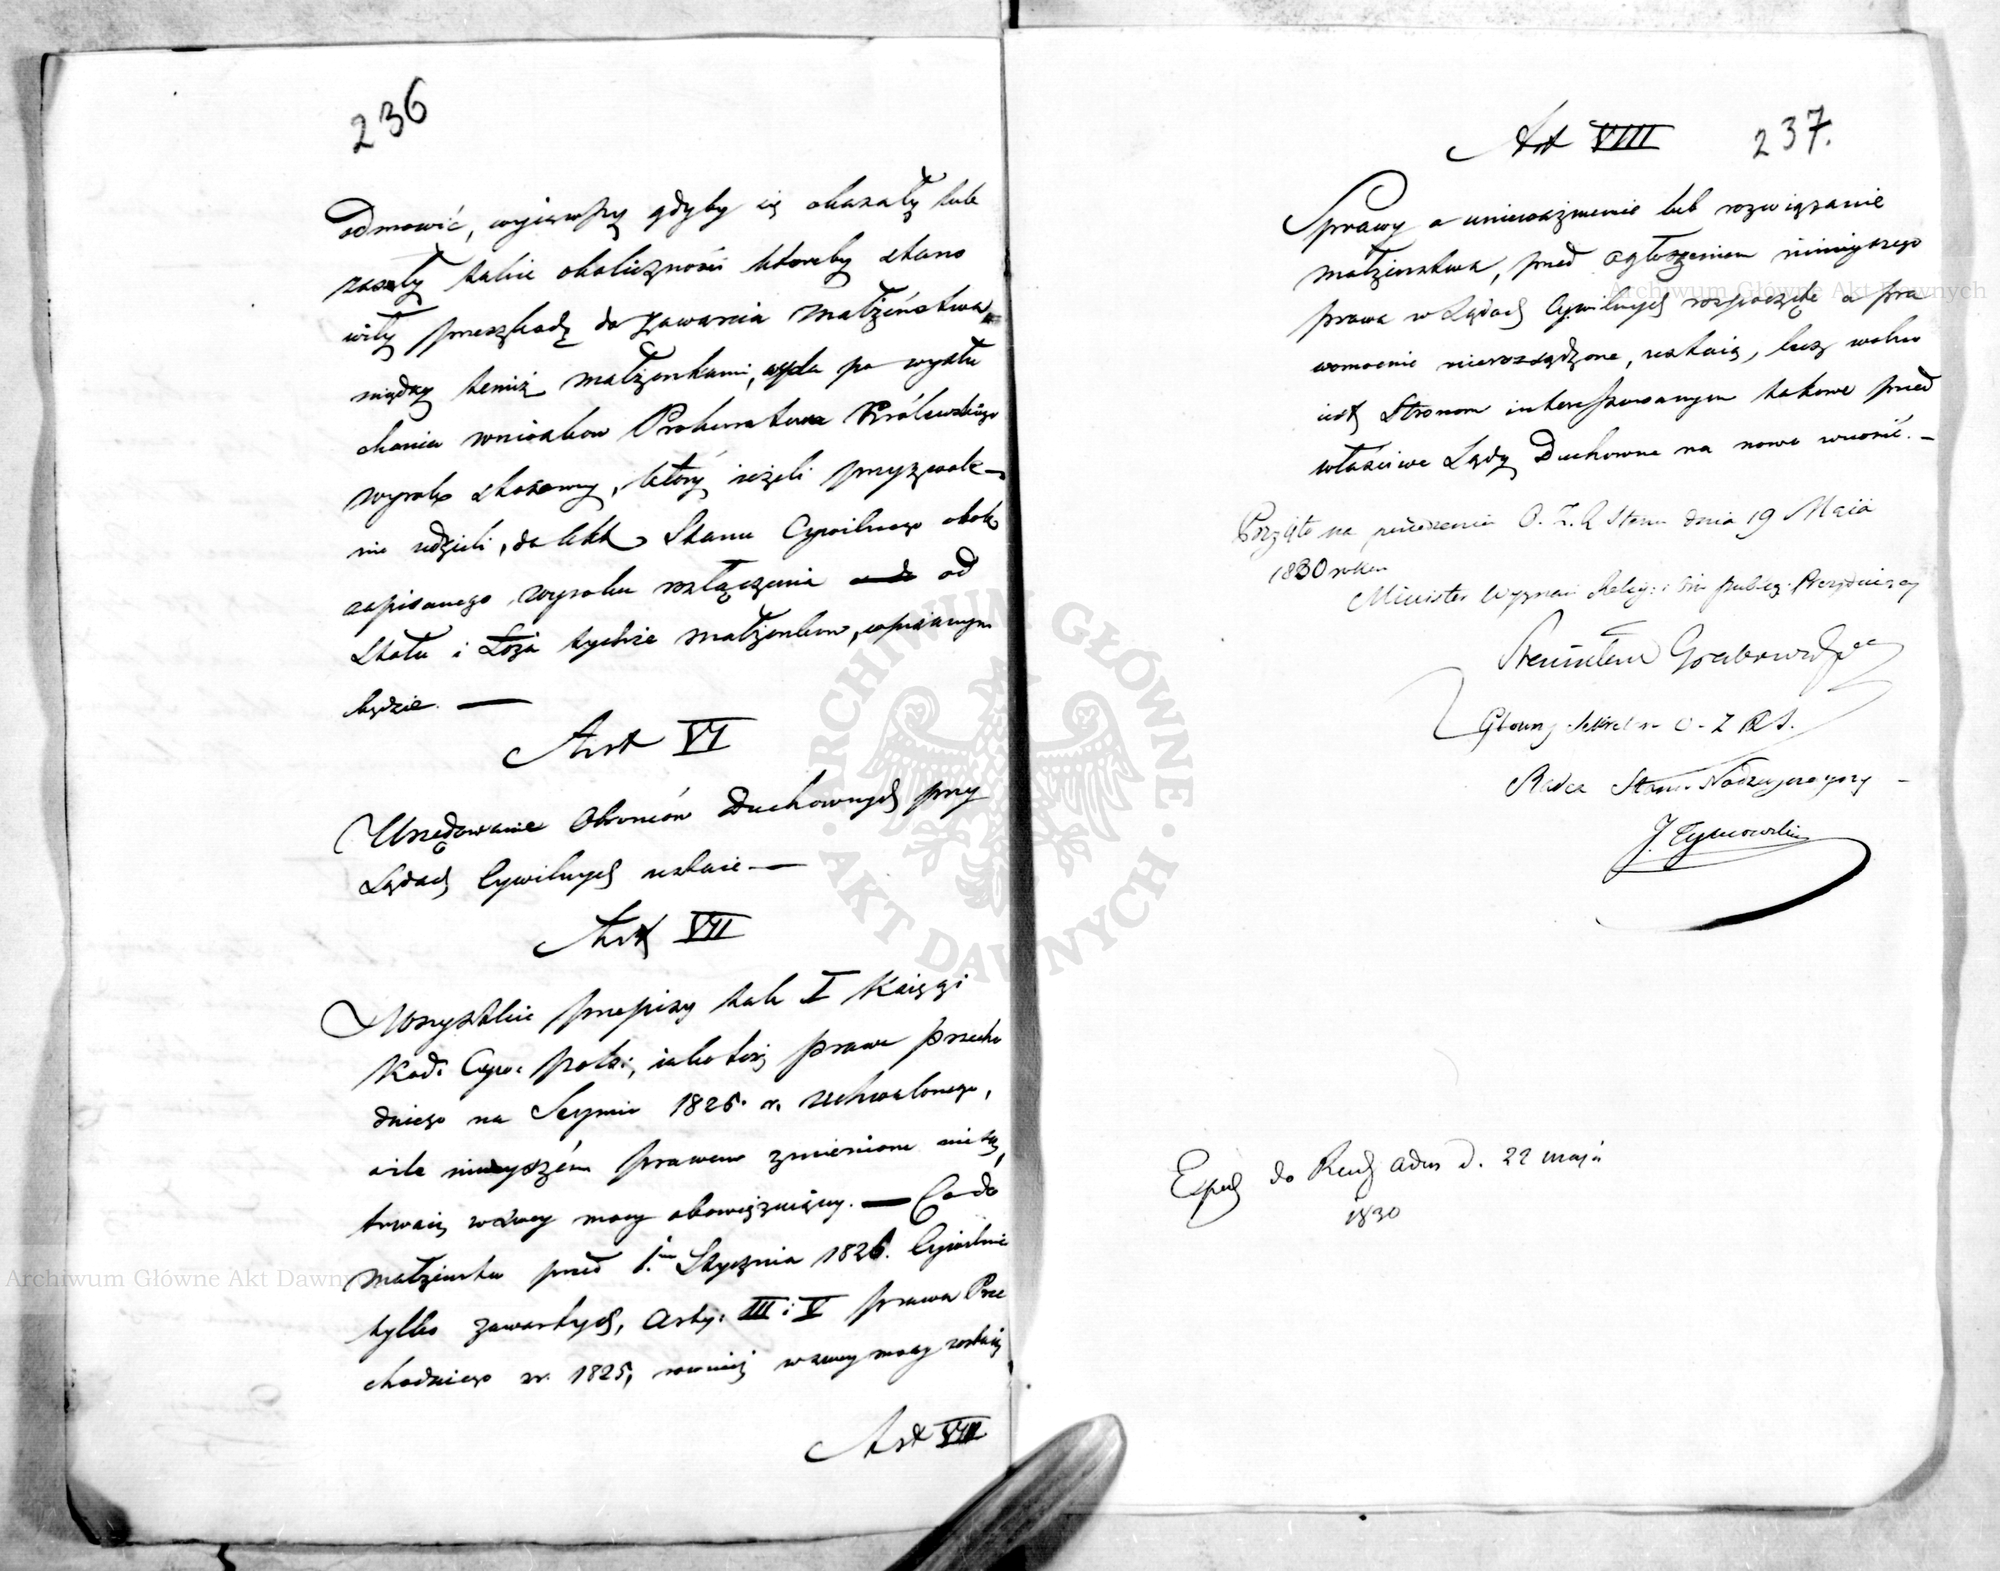 236
odmowić, wyiąwszy gdyby się okazały lub
zaszły takie okoliczności któreby stano
wiły przeszkodę do zawarcia małżeństwa
między temiż małżonkami, a po wysłu
chaniu wniosków Prokuratora Królewskiego
wyrok stosowny, który jeżeli przyzwole
nie udzieli, do Akt Stanu Cywilnego obok
zapisanego wyroku rozłączenia od
Stołu i Łoża tychże małżonków, wpisanym
będzie. —
Art VI
Urzędowanie Obrońców Duchownych przy
Sądach Cywilnych ustaie —
Art VII
Wszystkie przepisy tak I Księgi
Kod: Cyw: Pols:, iako też prawa przecho
dniego na Seymie 1825 r. uchwalonego,
o ile ninieyszém prawem zmienione nie są,
trwaią w swey mocy obowiązuiącey. — Co do
małżeństw przed 1. Stycznia 1826. Cywilnie
tylko zawartych, Arty: III i V prawa Prze
chodniego z r. 1825, również w swey mocy zostaią
Art VIII
Art VIII
237.
Sprawy o unieważnienie lub rozwiązanie
małżeństwa, przed ogłoszeniem ninieyszego
prawa w Sądach Cywilnych rozpoczęte a pra
womocnie nierozsądzone, ustaią, lecz wolno
iest Stronom interessowanym takowe przed
właściwe Sądy Duchowne na nowo wnosić. —
Przyięto na posiedzeniu O. Z. R Stanu dnia 19 Maia
1830 roku
Minister Wyznań Relig: i Oś: publicz: Prezyduiący
Stanisław Grabowski
Główny Sekretarz O. Z R S.
Radca Stanu Nadzwyczayny
J. Tymowski
Exped do Rady Adm d. 22 maja
1830
Archiwum Główne Akt Dawnych
Archiwum Główne Akt Dawnych
ARCHIWUM GŁÓWNE
· AKT DAWNYCH ·